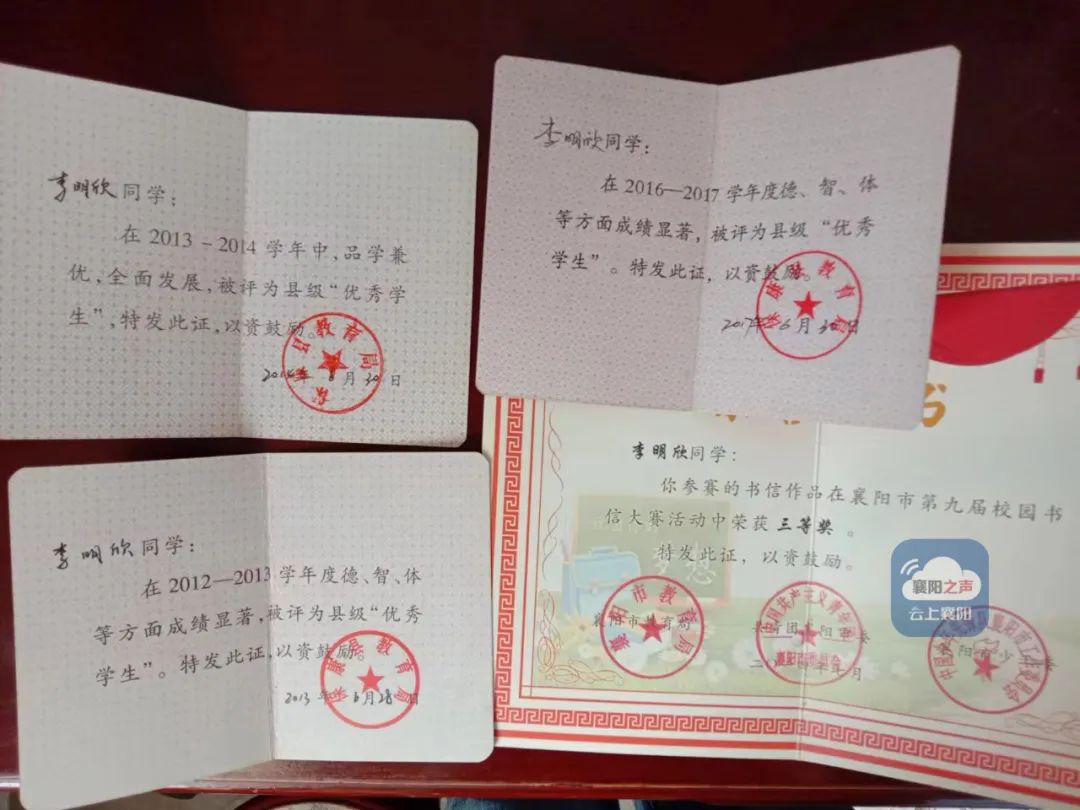 李明欣同学：
在2013-2014学年中，品学兼
优，全面发展，被评为县级“优秀学
生”，特发此证，以资鼓励。
2014年6月30日
县教育局
李明欣同学：
在2016—2017学年度德、智、体
等方面成绩显著，被评为县级“优秀
学生”。特发此证，以资鼓励。
2017年6月30日
保康县教育局
李明欣同学：
在2012—2013学年度德、智、体
等方面成绩显著，被评为县级“优秀
学生”。特发此证，以资鼓励。
2013年6月28日
保康县教育局
书
李明欣同学：
你参赛的书信作品在襄阳市第九届校园书
信大赛活动中荣获三等奖。
特发此证，以资鼓励。
梦想
襄阳市教育局
襄阳市教育局
共青团襄阳市委
中国共产主义青年团
襄阳市委员会
襄阳之声
云上襄阳